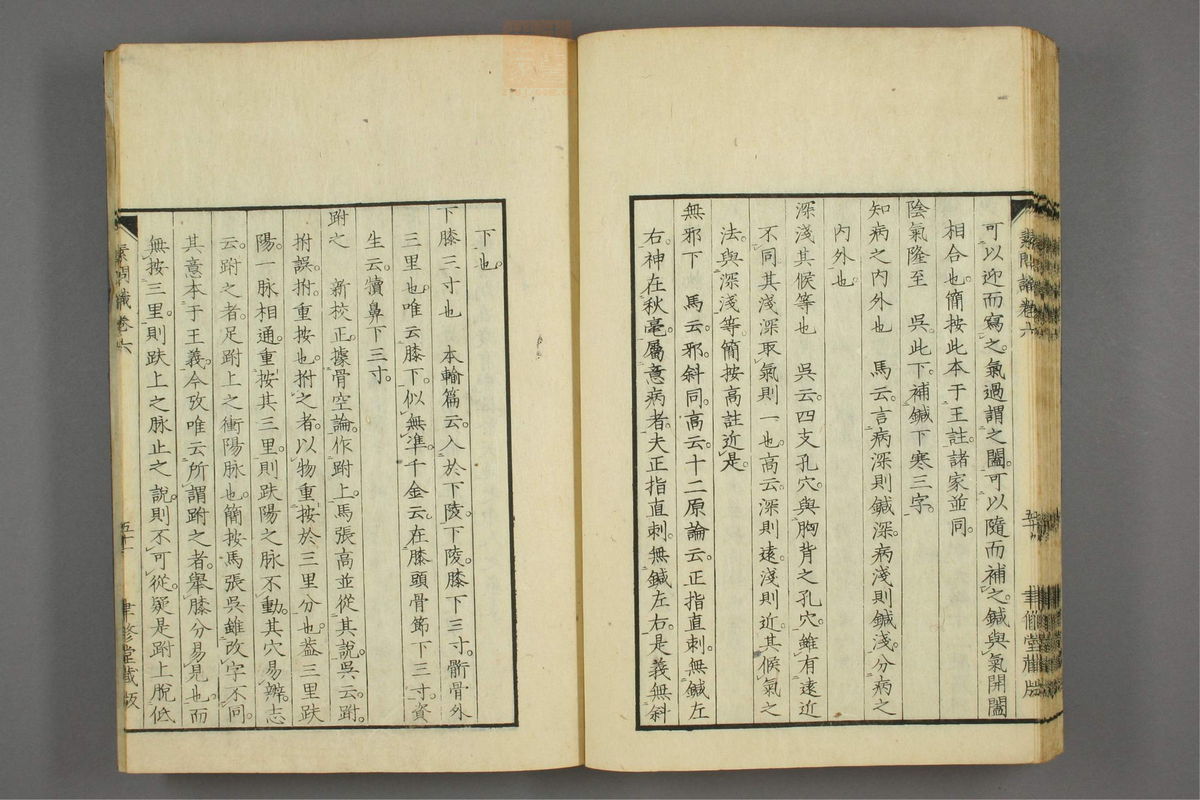 素問識卷六
可以迎而寫之氣過謂之闔可以隨而補之鍼與氣開闔
相合也簡按此本于王註諸家並同
陰氣隆至　吳此下補鍼下寒三字
知病之內外也　馬云言病深則鍼深病淺則鍼淺分病之
內外也
深淺其候等也　吳云四支孔穴與胸背之孔穴雖有遠近
不同其淺深取氣則一也高云深則遠淺則近其候氣之
法與深淺等簡按高註近是
無邪下　馬云邪斜同高云十二原論云正指直刺無鍼左
右神在秋毫屬意病者夫正指直刺無鍼左右是義無斜
聿修堂藏版
下也
下膝三寸也　本輸篇云入於下陵下陵膝下三寸䯒骨外
三里也唯云膝下似無準千金云在膝頭骨節下三寸資
生云犢鼻下三寸
跗之　新校正據骨空論作跗上馬張高並從其說吳云跗
拊誤拊重按也拊之者以物重按於三里分也蓋三里趺
陽一脉相通重按其三里則趺陽之脉不動其穴易辨志
云跗之者足跗上之衝陽脉也簡按馬張吳雖改字不同
其意本于王義今攷唯云所謂跗之者舉膝分易見也而
無按三里則趺上之脉止之說則不可從疑是跗上脫低
素問識卷六
五十一
聿修堂藏版